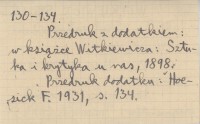 130-134.
Przedruk z dodatkiem:
w książce Witkiewicza: Sztu-
ka i krytyka u nas, 1898.
Przedruk dodatku: Hoe-
sick F. 1931, s. 134.